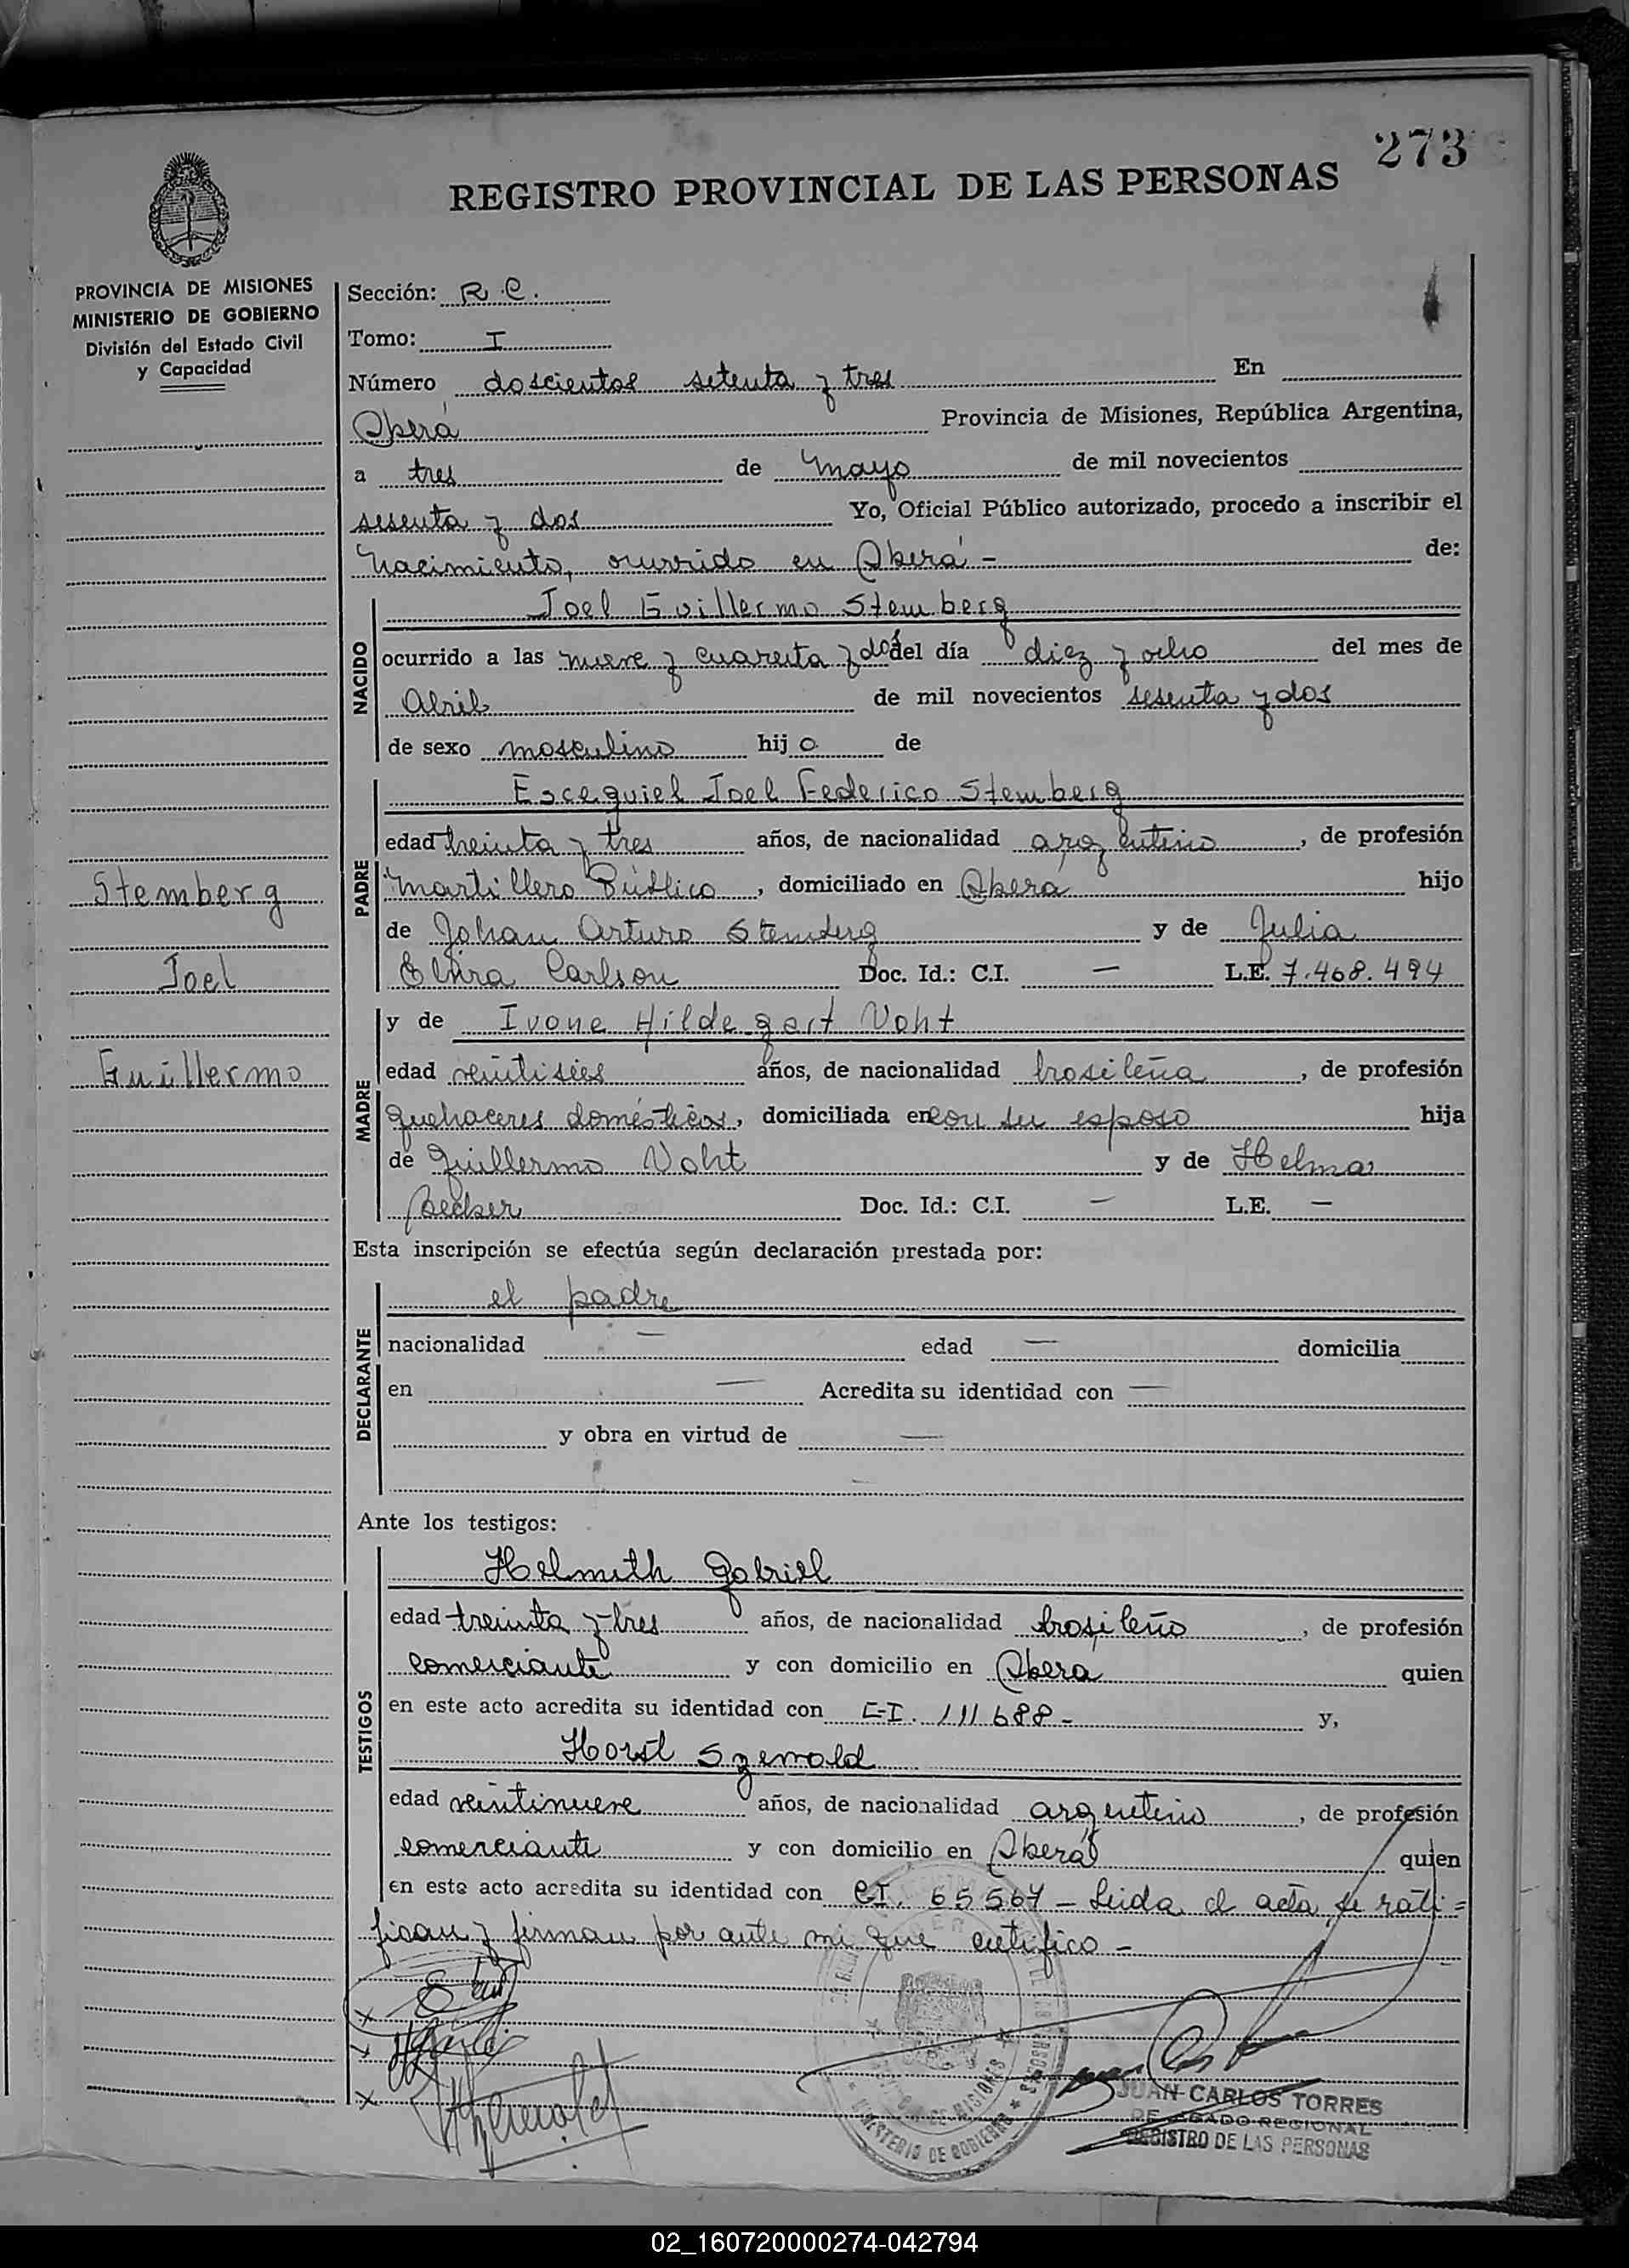 273
REGISTRO PROVINCIAL DE LAS PERSONAS
PROVINCIA DE MISIONES
MINISTERIO DE GOBIERNO
División del Estado Civil
y Capacidad
Stemberg
Joel
Guillermo
Sección: R.C.
Tomo: I
Número doscientos setenta y tres En
Oberá Provincia de Misiones, República Argentina,
a tres de Mayo de mil novecientos
sesenta y dos Yo, Oficial Público autorizado, procedo a inscribir el
Nacimiento, ocurrido en Oberá - de:
NACIDO
Joel Guillermo Stemberg
ocurrido a las nueve y cuarenta y dos del día diez y ocho del mes de
Abril de mil novecientos sesenta y dos
de sexo masculino hijo de
PADRE
Escequiel Joel Federico Stemberg
edad treinta y tres años, de nacionalidad argentino, de profesión
Martillero Público, domiciliado en Oberá hijo
de Johan Arturo Stemberg y de Julia
Elvira Carlson Doc. Id.: C.I. — L.E. 7.468.494
MADRE
y de Ivone Hildegart Voht
edad veintiséis años, de nacionalidad brasileña, de profesión
quehaceres domésticos, domiciliada en con su esposo hija
de Guillermo Voht y de Helma
Becker Doc. Id.: C.I. — L.E. —
Esta inscripción se efectúa según declaración prestada por:
DECLARANTE
el padre
nacionalidad — edad — domicilia
en — Acredita su identidad con —
y obra en virtud de —
Ante los testigos:
TESTIGOS
Helmuth Gabriel
edad treinta y tres años, de nacionalidad brasileño, de profesión
comerciante y con domicilio en Oberá quien
en este acto acredita su identidad con C.I. 111688 - y,
Horst Szewald
edad veintinueve años, de nacionalidad argentino, de profesión
comerciante y con domicilio en Oberá quien
en este acto acredita su identidad con C.I. 65567 - Leida el acta, se rati=
fican y firman por ante mi que certifico -
MINISTERIO DE GOBIERNO
JUAN CARLOS TORRES
DELEGADO REGIONAL
REGISTRO DE LAS PERSONAS
02_160720000274-042794